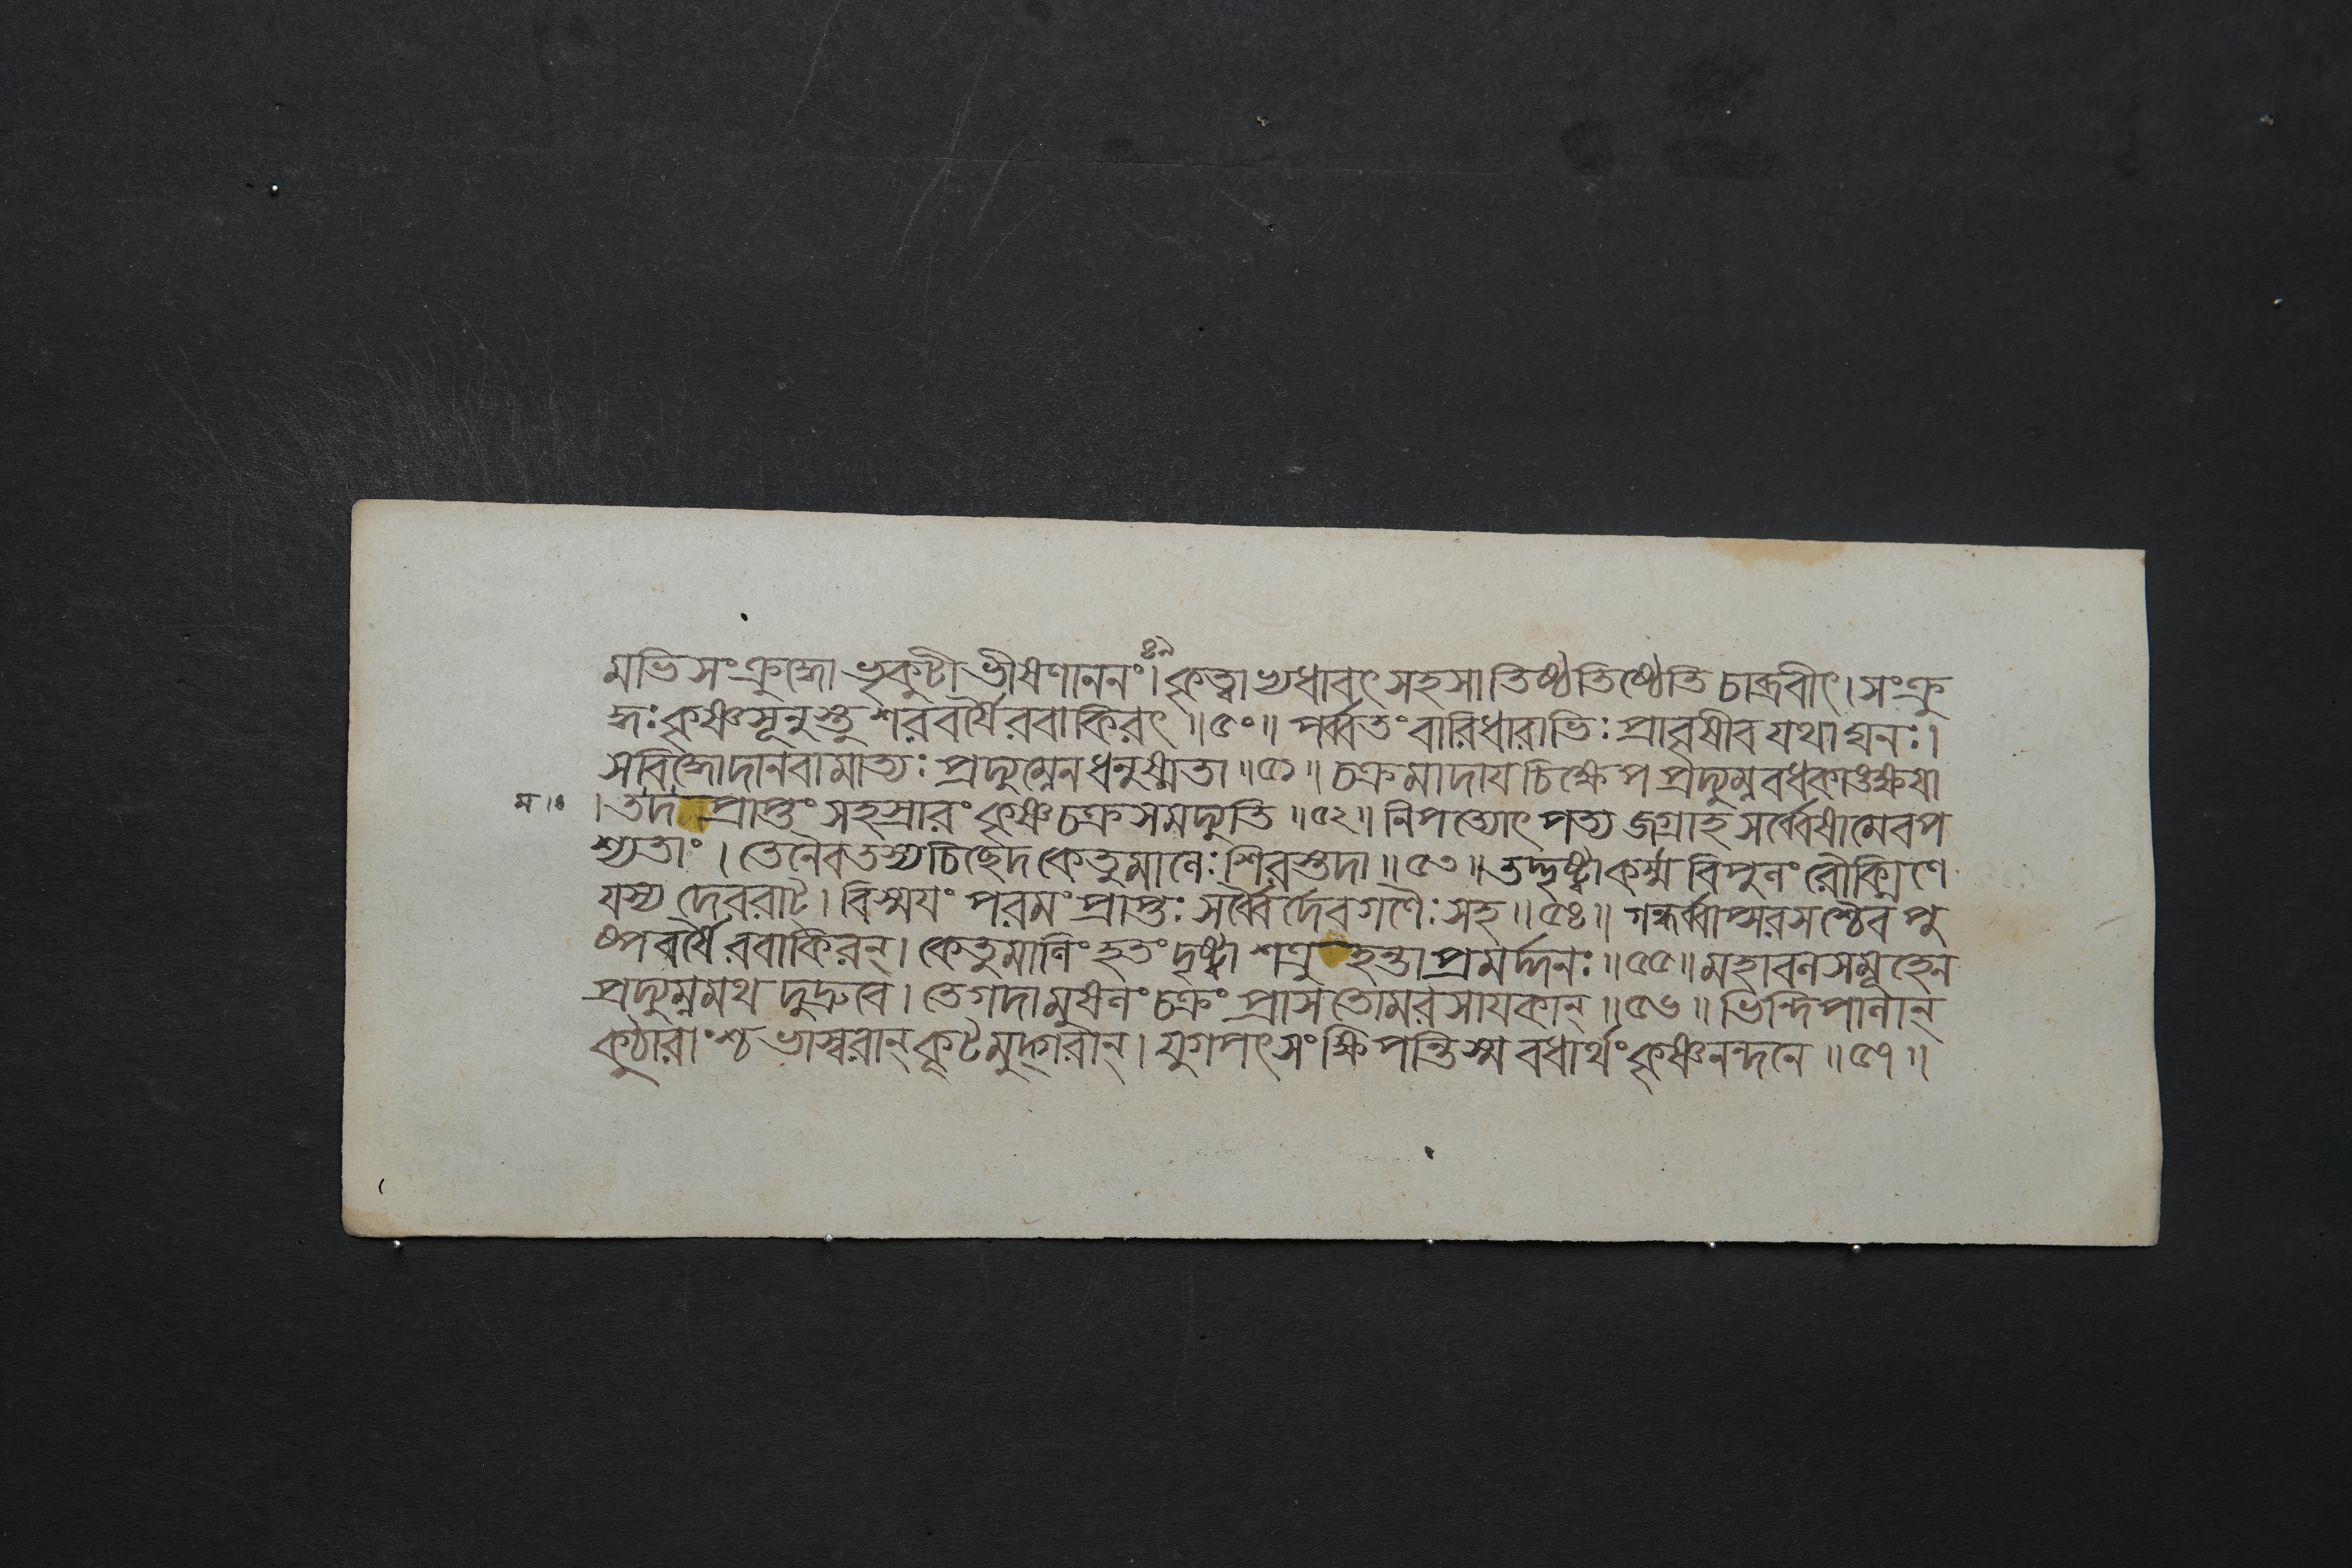 ৪৯
মভিসংক্রুদ্ধো ভৃকুটীভীষণাননং। কৃত্বাভ্যধাবৎ সহসা তিষ্ঠতিষ্ঠেতি চাব্রবীৎ। সংক্রু
দ্ধঃ কৃষ্ণসূনুস্তু শরবর্ষৈরবাকিরৎ ॥৫০॥ পর্ব্বতং বারিধারাভিঃ প্রাবৃষীব যথা ঘনঃ।
স বিদ্ধো দানবামাত্যঃ প্রদ্যুম্নেন ধনুষ্মতা ॥৫১॥ চক্রমাদায চিক্ষেপ প্রদ্যুম্নবধকাঙ্ক্ষযা
। তদপ্রাপ্তং সহস্রারং কৃষ্ণচক্রসমদ্যুতি ॥৫২॥ নিপত্যোৎপত্য জগ্রাহ সর্ব্বেষামেব প
শ্যতাং। তেনৈব তস্য চিছেদ কেতুমালেঃ শিরস্তদা ॥৫৩॥ তদ্দৃষ্ট্বা কর্ম্ম বিপুলং রৌক্মিণে
যস্য দেবরাট্। বিস্ময়ং পরমং প্রাপ্তঃ সর্ব্বৈর্দেবগণৈঃ সহ ॥৫৪॥ গন্ধর্ব্বাপ্সরসশ্চৈব পু
ষ্পবর্ষৈরবাকিরন্। কেতুমালিং হতং দৃষ্ট্বা শত্রুহন্তা প্রমর্দ্দনঃ ॥৫৫॥ মহাবলসমূহেন
প্রদ্যুম্নমথ দুদ্রুবে। তে গদামুষলং চক্রং প্রাসতোমরসাযকান্ ॥৫৬॥ ভিন্দিপালান্
কুঠারাংশ্চ ভাস্বরান্ কূটমুদ্গরান্। যুগপৎ সংক্ষিপন্তি স্ম বধার্থং কৃষ্ণনন্দনে ॥৫৭॥